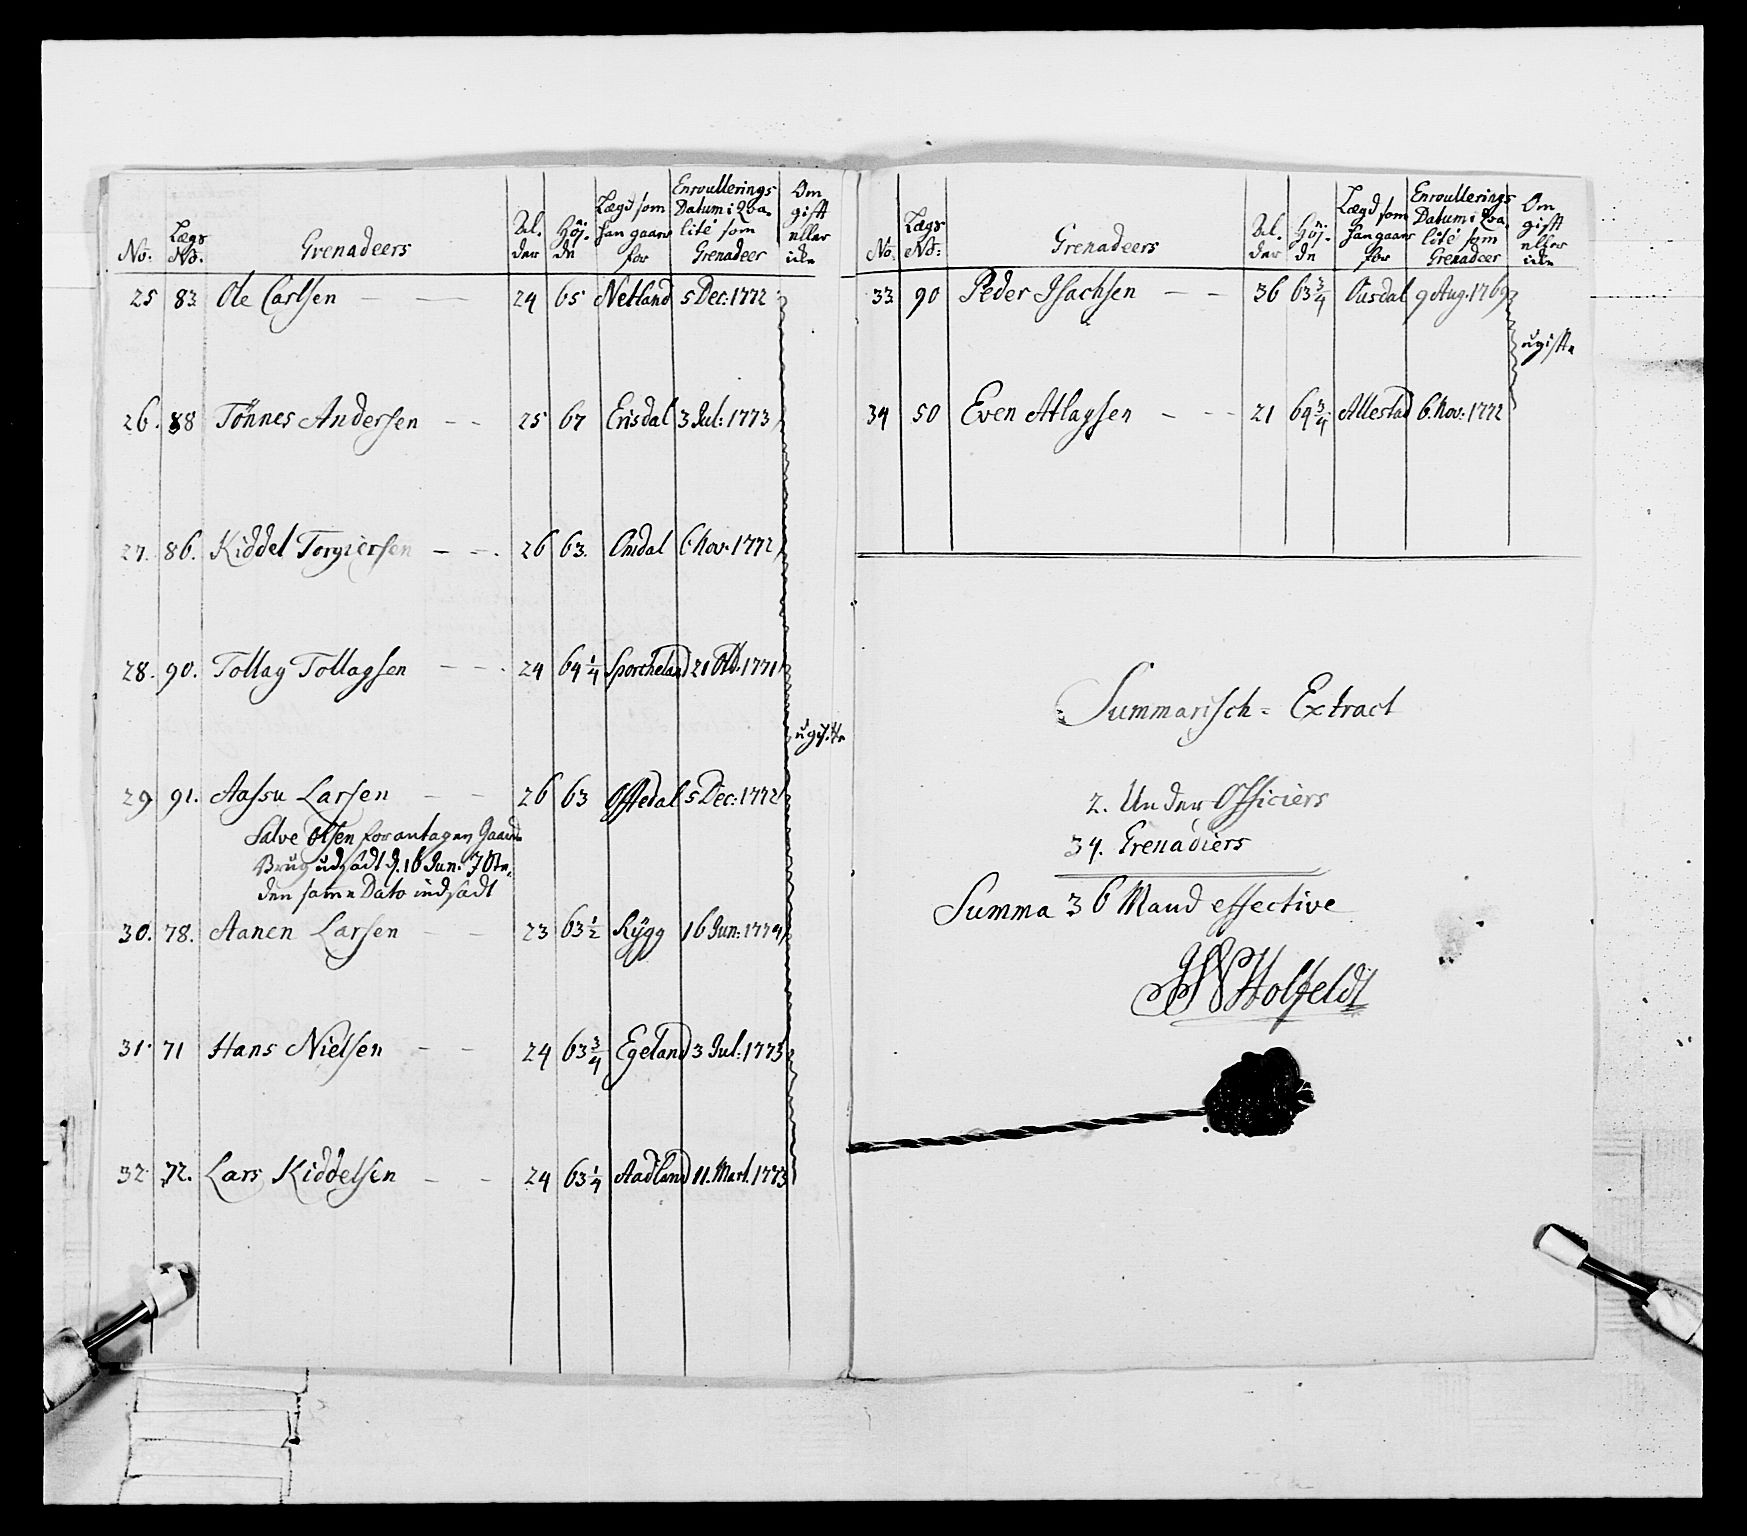 No: Lægs No: Grenadeers Al. der Høj. de Lægd som han gaar for Enroullerings Datum i Qva- lité som Grenadeer Om gift eller ikke
25 83 Ole Carlsen — — 24 65 Netland 5 Dec: 1772
26. 88 Tönnes Andersen — — 25 67 Erisdal 3 Jul: 1773
27. 86. Kiddel Torgiersen — — 26 63. Omdal 6 Nov: 1772
28. 90. Tollag Tollagsen — — 24 64 1/4 Sporcheland 21 Oct: 1771
ugifte
29 91. Aassu Larsen — — 26 63 Offedal 5 Dec: 1772
Salve Olsen for antagen Gaard
Brug udsadt d. 16 Jun: J Ste-
den samme Dato indsadt
30. 78. Aanen Larsen — — 23 63 1/2 Rÿgg 16 Jun: 1774
31. 71 Hans Nielsen — — 24 63 3/4 Egeland 3 Jul: 1773
32. 72. Lars Kiddelsen — — 24 63 1/4 Aadland 11. Mart. 1773
No. Lægs No: Grenadeers Al. der Høj. de Lægd som han gaar for Enroullerings Datum i Qva- lité som Grenadeer Om gift eller ikke
33 90 Peder Isachsen — — 36 63 3/4 Ousdal 9 Aug. 1769
ugifte
34 50 Even Atlagsen — — 21 64 3/4 Allestad 6. Nov: 1772
Summarisch = Extract
2. Under Officiers
34. Grenadiers
Summa 36 Mand effective
Holfeldt